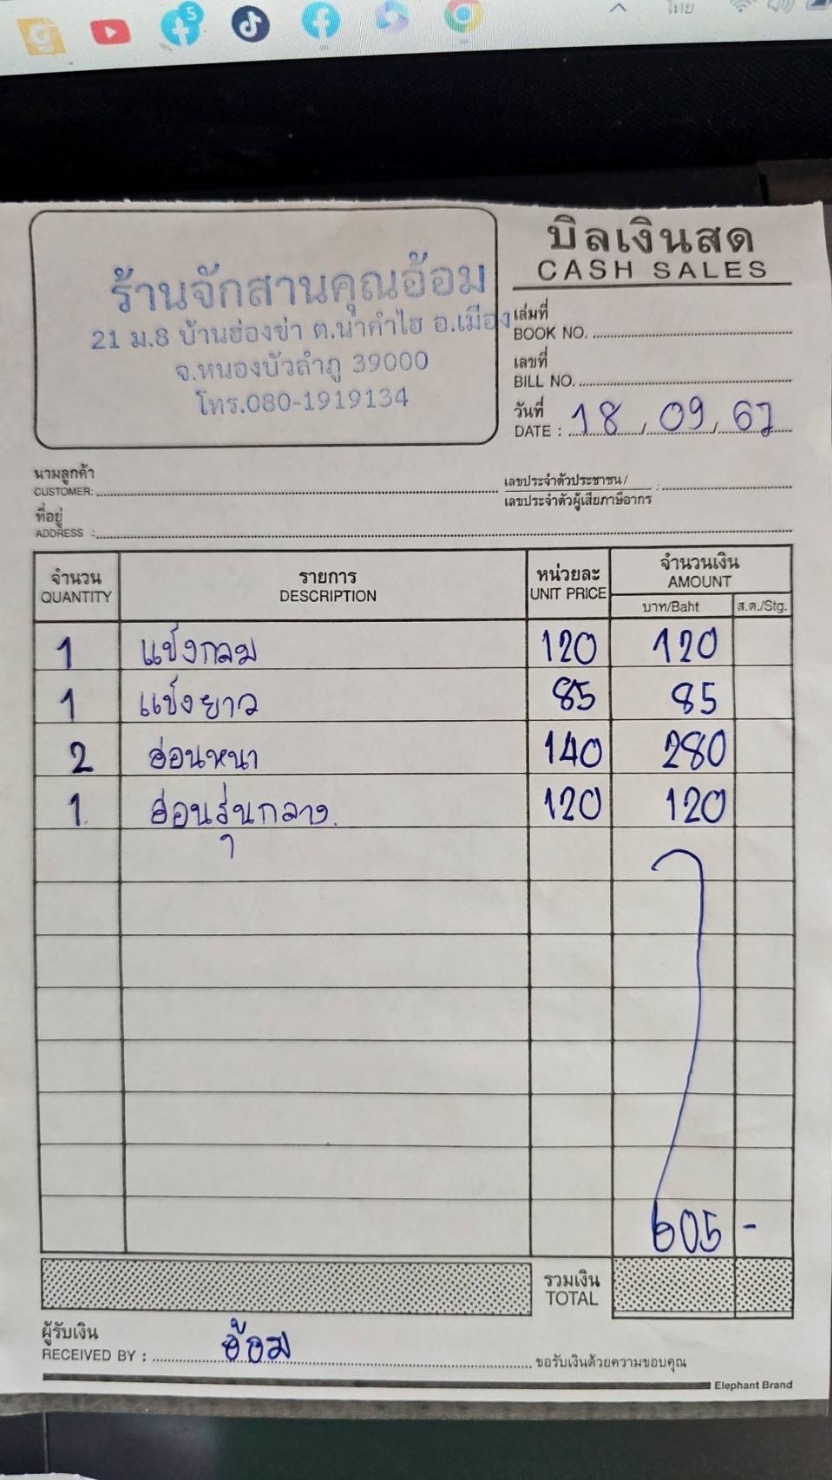 5
ไทย
ร้านจักสานคุณอ้อม
21 ม.8 บ้านฮ่องข่า ต.นาคำไฮ อ.เมือง
จ.หนองบัวลำภู 39000
โทร.080-1919134
บิลเงินสด
CASH SALES
เล่มที่
BOOK NO.
เลขที่
BILL NO.
วันที่
DATE : 18 / 09 / 67
นามลูกค้า
CUSTOMER:
เลขประจำตัวประชาชน/ :
เลขประจำตัวผู้เสียภาษีอากร
ที่อยู่
ADDRESS :
จำนวน รายการ หน่วยละ จำนวนเงิน
QUANTITY DESCRIPTION UNIT PRICE AMOUNT
บาท/Baht ส.ต./Stg.
1 แข็งกลม 120 120
1 แข็งยาว 85 85
2 อ่อนหนา 140 280
1 อ่อนรุ่นกลาง 120 120
605 -
รวมเงิน
TOTAL
ผู้รับเงิน
RECEIVED BY : อ้อม ขอรับเงินด้วยความขอบคุณ
Elephant Brand